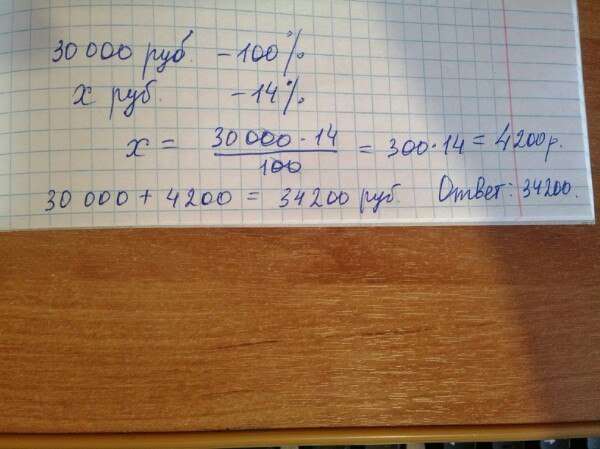 30 000 руб. - 100 %
x руб. - 14 %
x = 30 000 · 14 / 100 = 300 · 14 = 4200 р.
30 000 + 4200 = 34200 руб. Ответ: 34200.